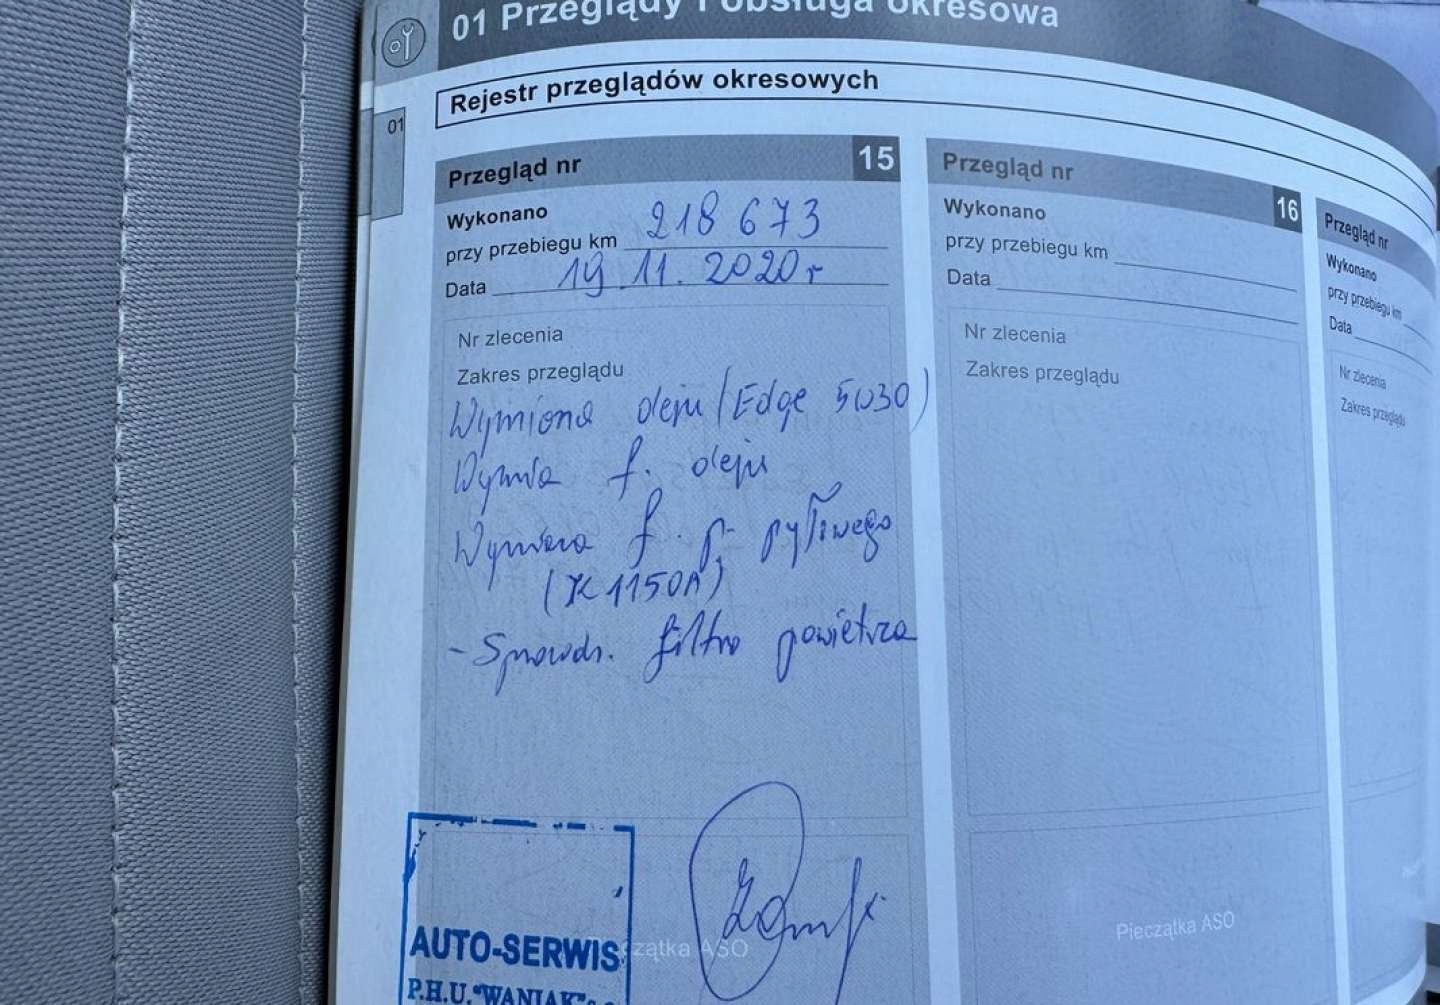 01 Przeglądy i obsługa okresowa
Rejestr przeglądów okresowych
01
Przegląd nr 15
Wykonano
przy przebiegu km 218 673
Data 19.11.2020r
Nr zlecenia
Zakres przeglądu
Wymiana oleju (Edge 5W30)
Wymia f. oleju
Wymiana f. p. pyłowego
(K1150A)
- Sprawdz. filtra powietrza
Pieczątka ASO
AUTO-SERWIS
P.H.U. "WANIAK"
Przegląd nr 16
Wykonano
przy przebiegu km
Data
Nr zlecenia
Zakres przeglądu
Pieczątka ASO
Przegląd nr
Wykonano
przy przebiegu km
Data
Nr zlecenia
Zakres przeglądu